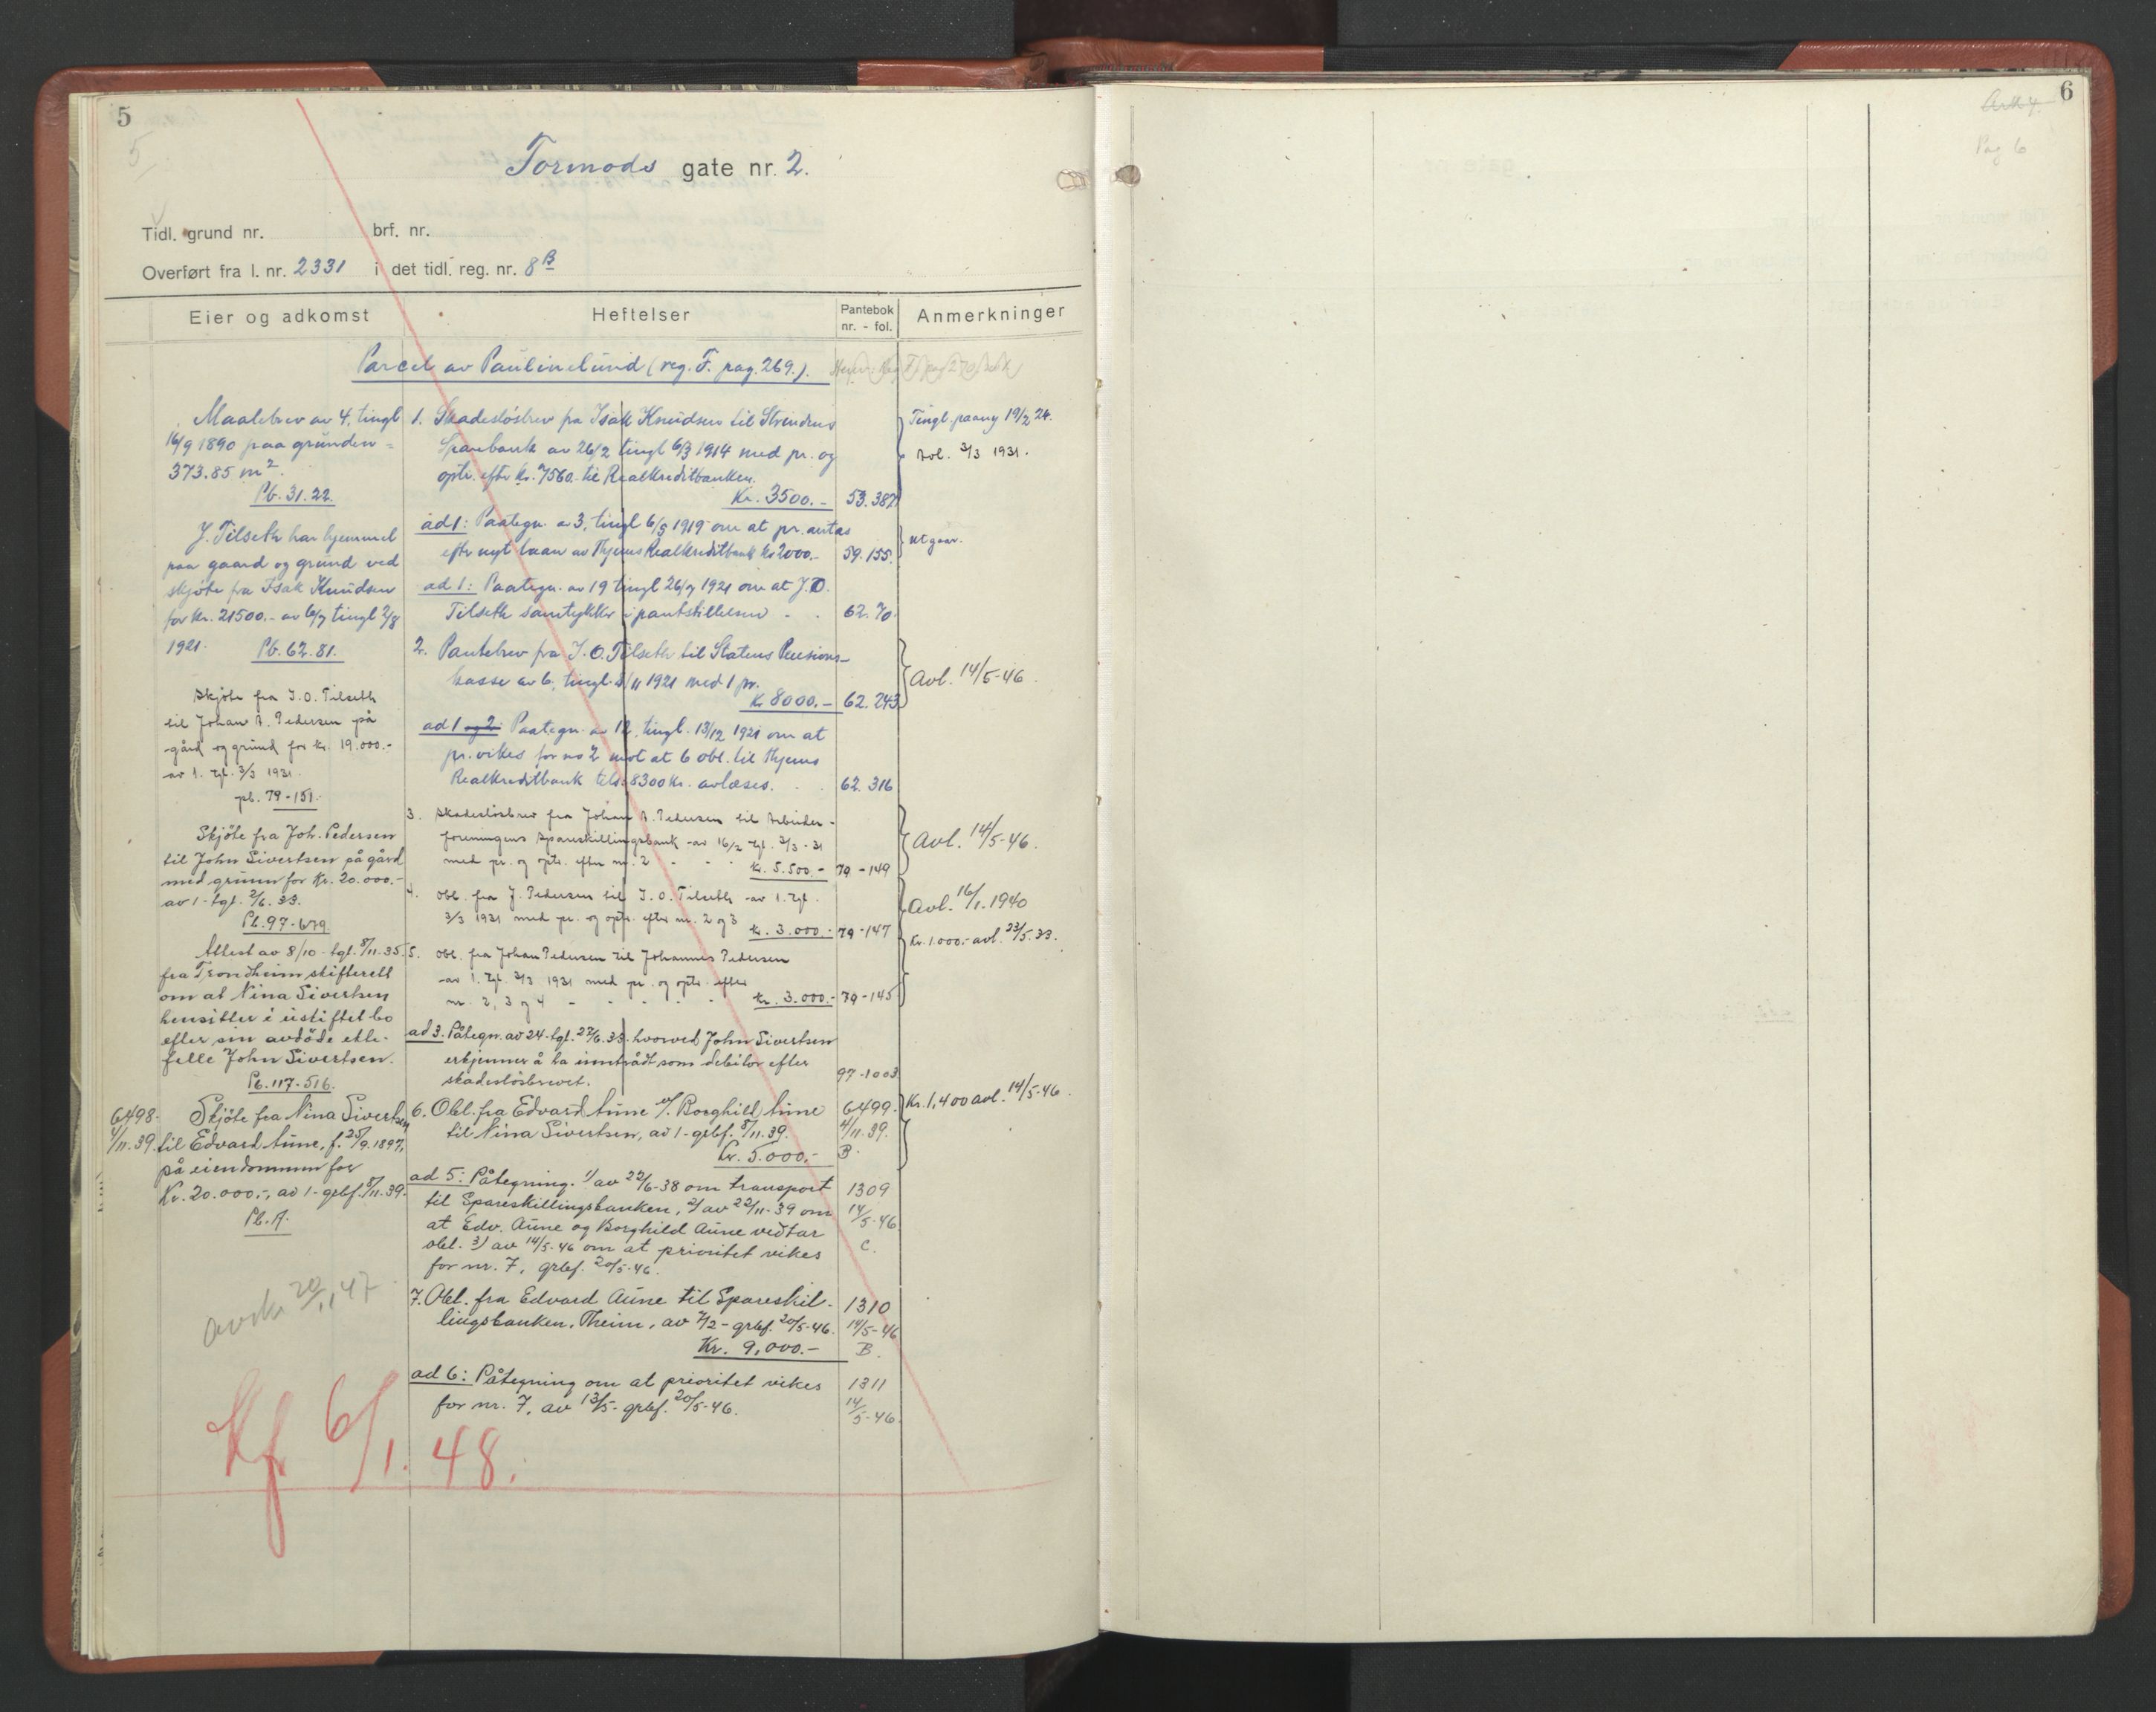 5
5
Tormods gate nr. 2.
Tidl. grund nr. brf. nr.
Overført fra l. nr. 2331 i det tidl. reg. nr. 8 B
Eier og adkomst
Heftelser
Pantebok
nr. - fol.
Anmerkninger
Parcel av Paulinelund (reg. F. pag. 269.).
Maalebrev av 4, tingl
16/9 1890 paa grunden =
373.85 m2.
Pb. 31.22.
J. Tilseth har hjemmel
paa gaard og grund ved
skjøte fra Isak Knudsen
for kr. 21500.- av 6/7 tingl 2/8
1921. Pb. 62.81.
Skjøte fra J. O. Tilseth
til Johan A. Pedersen på
gård og grund for kr. 19.000.-
av 1. tgl. 3/3 1931.
pb. 79-151.
Skjøte fra Joh. Pedersen
til John Sivertsen på gård
med grunn for kr. 20.000.-
av 1 - tgl. 2/6. 33.
Pb. 97-679
Attest av 8/10 - tgl. 8/11-35.
fra Trondheim skifterett
om at Nina Sivertsen
hensitter i uskiftet bo
efter sin avdøde ekte-
felle John Sivertsen.
Pb. 117-516.
6498. Skjøte fra Nina Sivertsen
4/11.39. til Edvard Aune, f. 25/9.1897,
på eiendommen for
Kr. 20.000.-, av 1 - grbf. 8/11-39.
Pb. A.
avskr. 20/11 47
Kf 6/1. 48.
1. Skadesløsbrev fra Isak Knudsen til Strindens
Sparebank av 26/2 tingl 6/3 1914 med pr. og
optr. efter kr. 7560.- til Realkreditbanken.
Kr. 3500.- 53.387
ad 1: Paategn. av 3, tingl 6/9 1919 om at pr. antas
efter nyt laan av Thjems Realkreditbank kr 2000.- 59.155.
ad 1: Paategn. av 19 tingl 26/7 1921 om at J. O.
Tilseth samtykker i pantstillelsen - . 62.70.
2. Pantebrev fra J. O. Tilseth til Statens Pensions-
kasse av 6, tingl. 8/11 1921 med 1 pr.
Kr 8000.- 62.243
ad 1 og 2 Paategn. av 12, tingl. 13/12 1921 om at
pr. vikes for no 2 mot at 6 obl. til Thjems
Realkreditbank tils. 8300 kr. avlæses. . . 62.316
3. Skadesløsbrev fra Johan A. Pedersen til Arbeider-
foreningens Spareskillingsbank av 16/2 tgl. 3/3-31
med pr. og optr. efter nr. 2 - - - kr. 5.500.- 79-149
4. Obl. fra J. Pedersen til J. O. Tilseth av 1. tgl.
3/3 1931 med pr. og optr. efter nr. 2 og 3
kr. 3.000.- 79-147
5. Obl. fra Johan Pedersen til Johannes Pedersen
av 1. tgl. 3/3 1931 med pr. og optr. efter
nr. 2, 3 og 4 - - - - kr. 3.000.- 79-145
ad 3. Påtegn. av 24 - tgl. 27/6.33. hvorved John Sivertsen
erkjenner å ha inntrådt som debitor efter
skadesløsbrevet. 97-1003
6. Obl. fra Edvard Aune m/. Borghild Aune 6499.
til Nina Sivertsen, av 1 - grbf. 8/11.39. 4/11.39.
Kr. 5.000.- B.
ad 5: Påtegning. 1) av 22/6-38 om transport 1309
til Spareskillingsbanken, 2) av 22/11-39 om 14/5-46
at Edv. Aune og Borghild Aune vedtar
obl. 3) av 14/5-46 om at prioritet vikes C.
for nr. 7, grbf. 20/5-46.
7. Obl. fra Edvard Aune til Spareskil- 1310
lingsbanken, Theim, av 7/2 - grbf. 20/5-46. 14/5-46
Kr. 9.000.- B.
ad 6: Påtegning om at prioritet vikes 1311
for nr. 7, av 13/5 - grbf. 20/5-46. 14/5-46.
Tingl. paany 19/2 24.
Avl. 3/3 1931.
utgaar.
Avl. 14/5-46.
Avl. 14/5-46.
Avl. 16/1.1940
Kr. 1.000.- avl. 23/5.33.
Kr. 1,400 avl. 14/5-46.
6
Pag 6